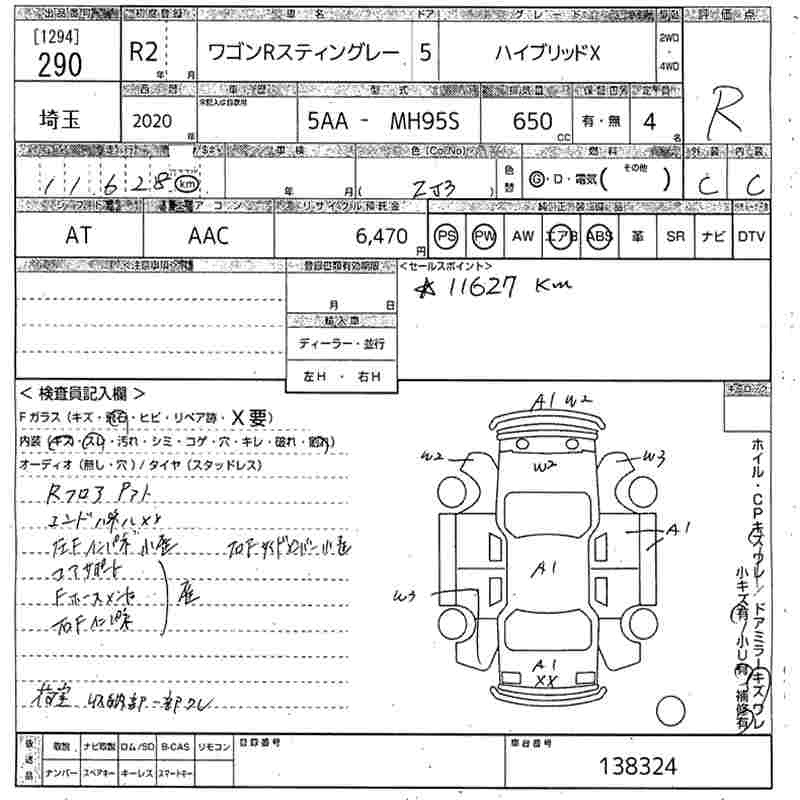 出品番号 初度登録 車名 ドア グレード 駆動 評価点
[1294] 290 R2 年 月 ワゴンRスティングレー 5 ハイブリッドX 2WD ・ 4WD R
西暦 車歴 型式 排気量 定員
埼玉 2020 年 未記入は自家用 5AA - MH95S 650 CC 有・無 4 名
走行 車検 色(Co.No) 燃料 外装 内装
11628 km 年 月 ( 2J3 ) 色替 G・D・電気( その他 ) C C
シフト エアコン リサイクル預託金 純正装備品
AT AAC 6,470 円 PS PW AW エアB ABS 革 SR ナビ DTV
<注意事項欄> 登録書類有効期限 <セールスポイント>
月 日 ☆11627 Km
輸入車
ディーラー・並行
左H ・ 右H
< 検査員記入欄 >
Fガラス(キズ・飛石・ヒビ・リペア跡・X要)
内装(キズ・スレ・汚れ・シミ・コゲ・穴・キレ・破れ・
オーディオ(無し・穴)/タイヤ(スタッドレス)
Rフロア アト
エンドパネルXX
左Fインパネ 小凹
コアサポート
右Fインパネ
収納部一部ワレ
A1 W2
W2 W2 W3
A1
A1
W3
A1
XX
ホイル・CPキズワレ/ドアミラーキズワレ
小キズ有/小U有/補修有
取説 ナビ取説 ロム/SD B-CAS リモコン 登録番号 車台番号
ナンバー スペアキー キーレス スマートキー 138324